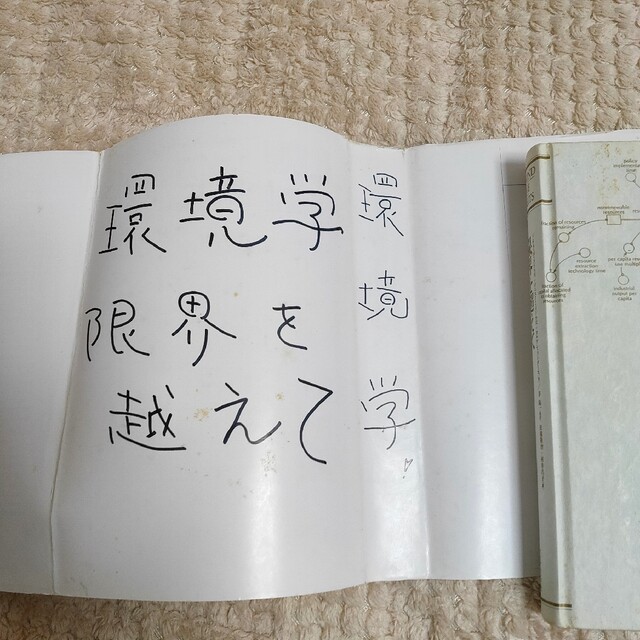 環境学
限界を
越えて
環境学
policy
nonrenewable
resource
extraction
technology time
per capita
industrial
output per
capita